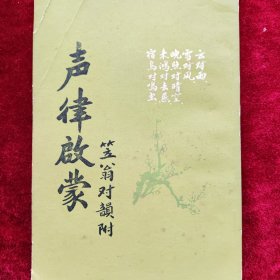 声律啟蒙
笠翁对韻附
云对雨
雪对风
晚照对晴空
来鸿对去燕
宿鸟对鸣虫